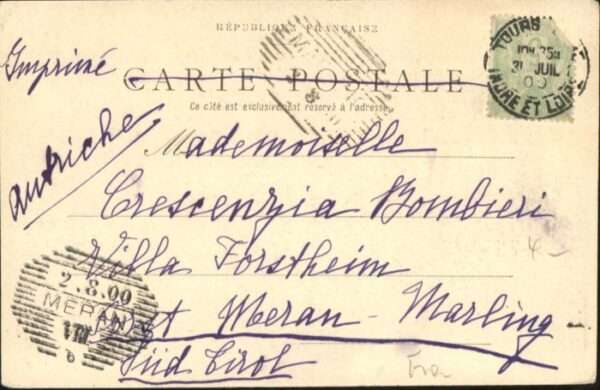 RÉPUBLIQUE FRANÇAISE
Imprimé
CARTE POSTALE
Ce côté est exclusivement réservé à l'adresse
TOURS
31 JUIL
00
INDRE ET LOIRE
Autriche
Mademoiselle
Crescenzia Bombieri
Villa Forstheim
Post Meran - Marling
Süd Tirol
2.8.00
MERAN